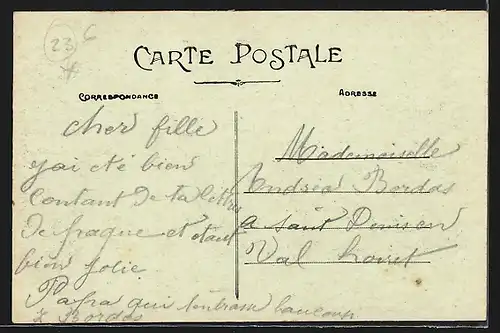 23
CARTE POSTALE
CORRESPONDANCE
ADRESSE
cher fille
j'ai eté bien
contant de ta lettre
de paque et etant
bien jolie
Papa qui t'embrasse baucoup
Bordas
Mademoiselle
Andréa Bordas
a saint Denis en
Val Loiret